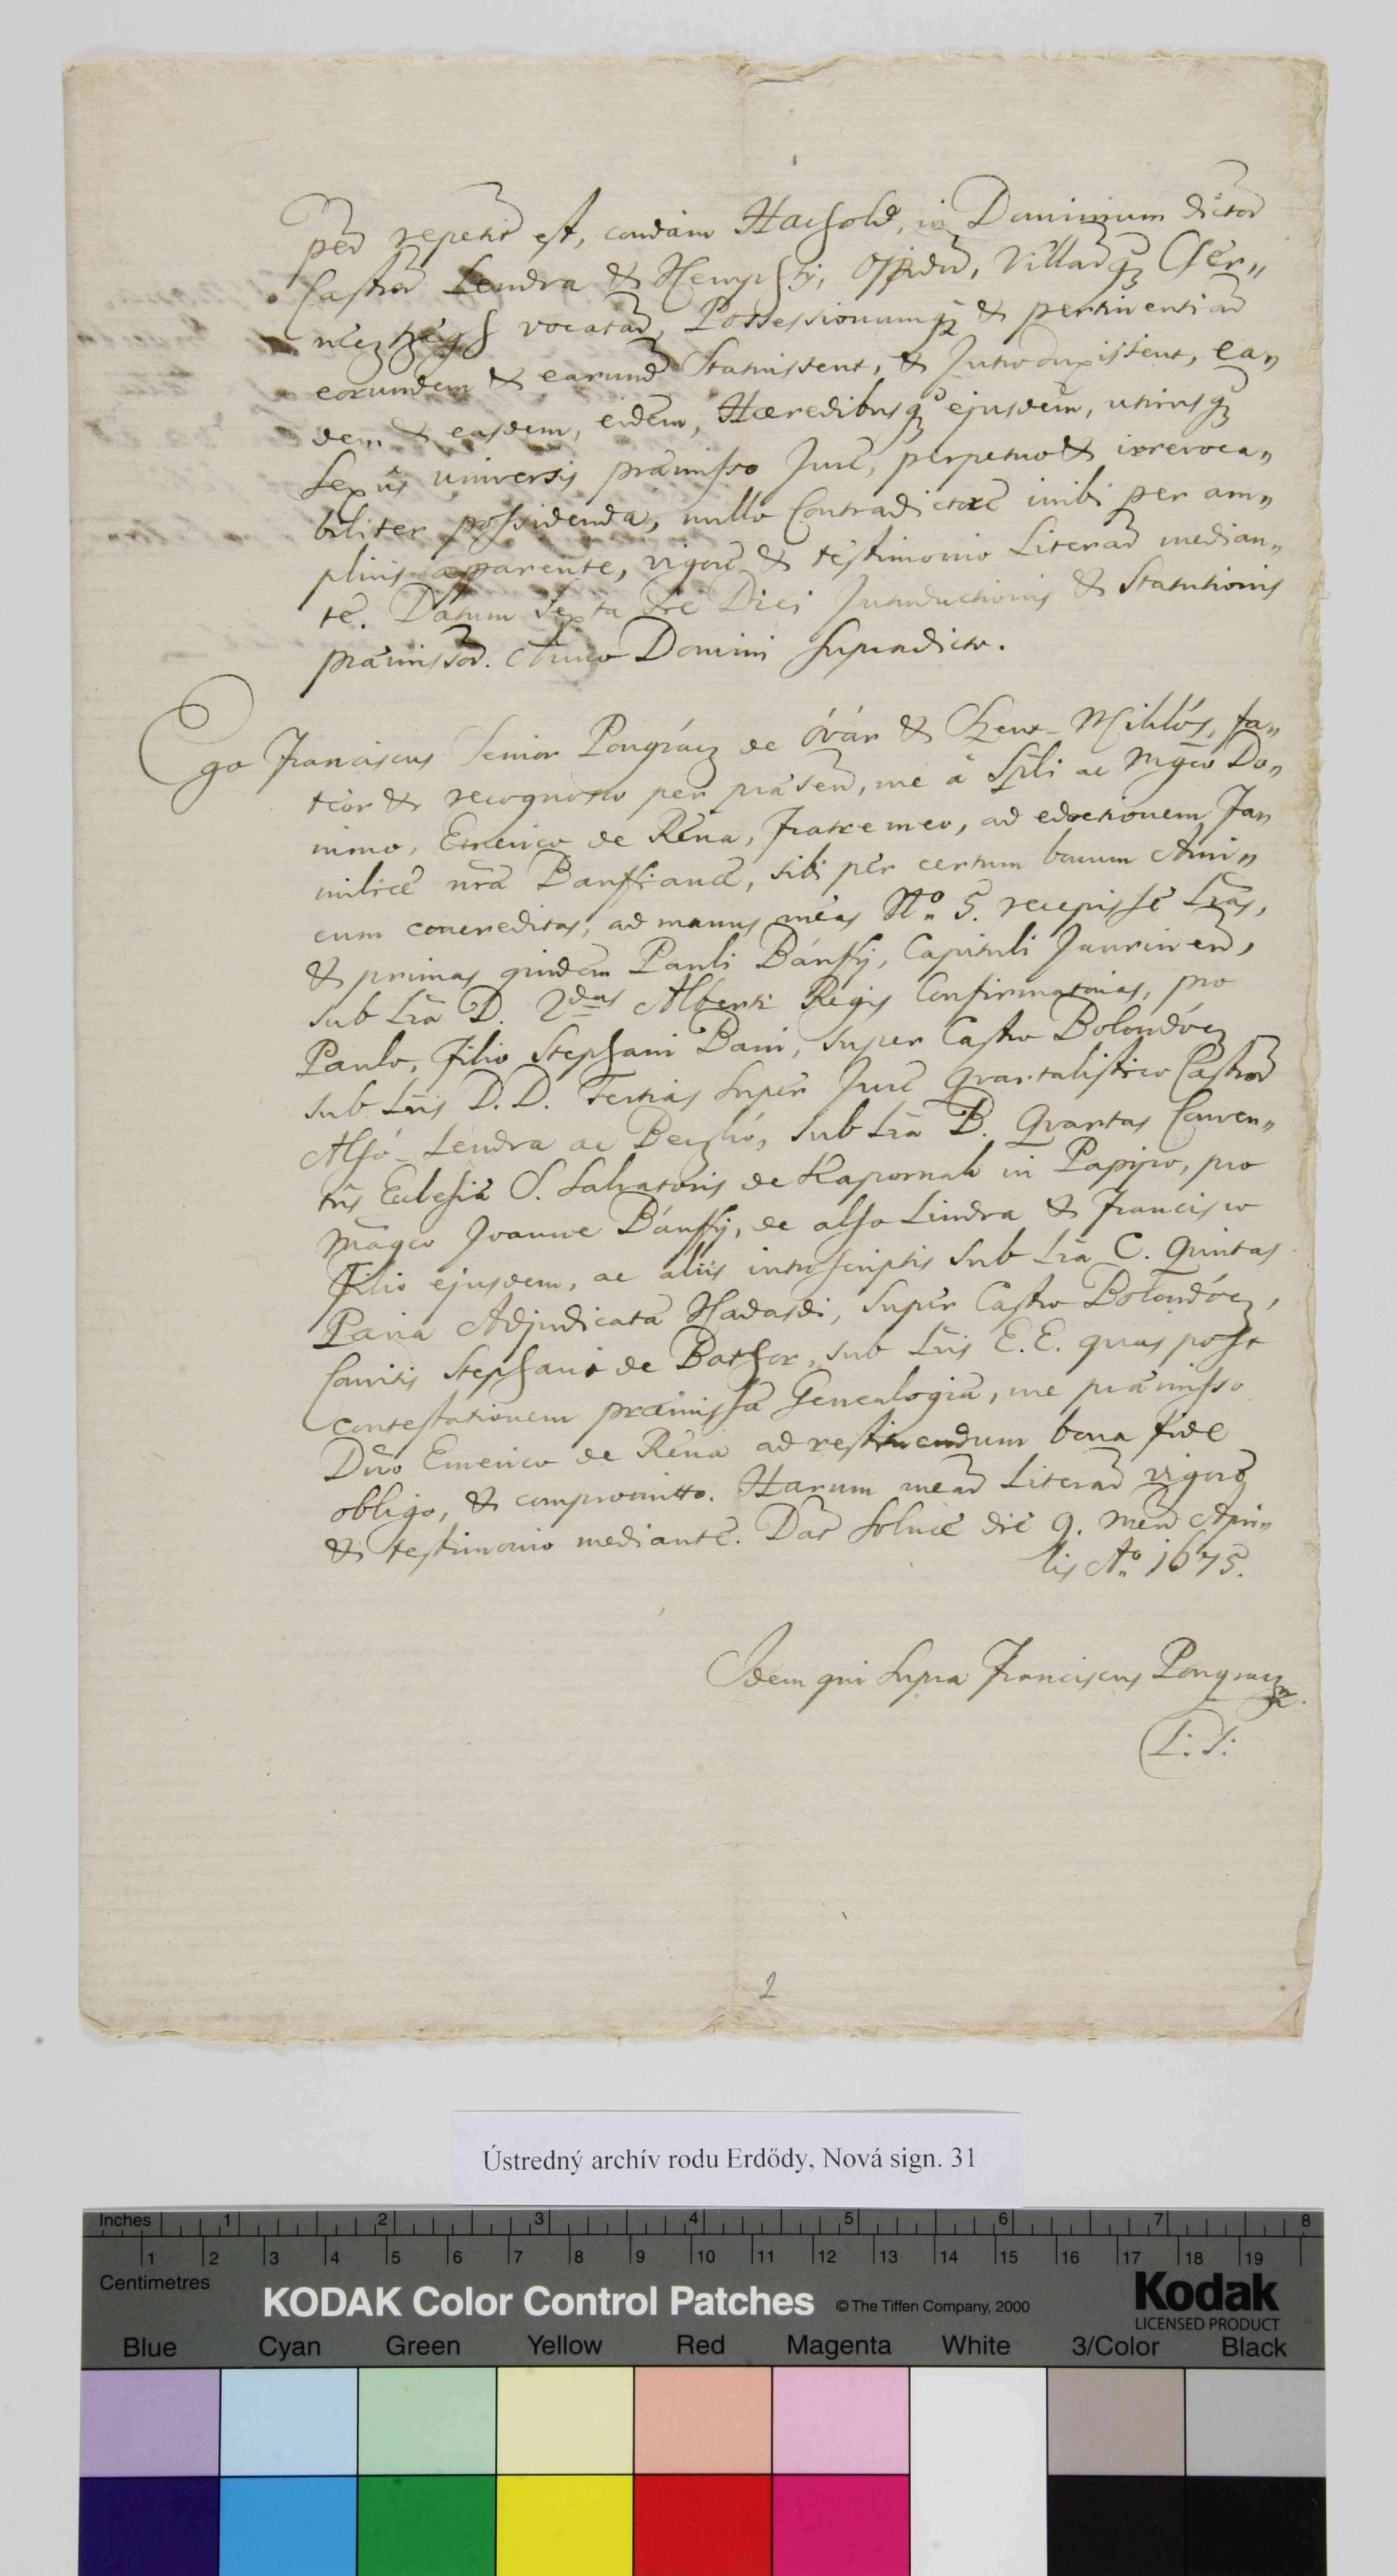 pred repetit est, condam Hachold, in Dominium dictor
Castror Lendra & Nempthy, Oppidor, Villarq3 Cser„
nez vocatar, Possessionumq3 & pertinentiar
eorundem & earund Statuissent, & Introduxissent, ea„
dem & easdem, eidem, Hæredibusq3 ejusdem, utriusq3
Sexûs universis præmisso Jure, perpetuo & irrevoca„
biliter possidenda, nullo Contradictore inibi per am„
plius apparente, vigore & testimonio Literar median„
te. Datum Sexta die Diei Introductionis & Statutionis
præmissar. Anno Domini Supradicto.
Ego Franciscus Senior Pongrácz de Óvár & Szent-Miklós, fa„
teor & recognosco per præsen, me â Spli ac Mgco Do„
mino, Emerico de Réva, Fratre meo, ad edoctionem Fa„
miliæ nræ Banffianæ, sibi per certum bonum Ami„
cum concreditas, ad manus meas No. 5. recepisse Lras,
& primas quidem Pauli Bánffy, Capituli Jaurinen,
sub Lra D. 2das Alberti Regis Confirmatorias, pro
Paulo, Filio Stephani Bani, super Castro Bolondócz
sub Lris D.D. Tertias super Jure Quartalitio Castror
Alsó-Lendra ac Beczkó, sub Lra B. Quartas Conven„
tus Ecclesiæ S. Salvatoris de Kapornak in Papiro, pro
Magco Joanne Bánffy, de also Lindva & Francisco
Filio ejusdem, ac aliis introscriptis sub Lra C. Quintas
Paria Adjudicata Nadasdi, super Castro Bolondócz,
Comitis Stephani de Bathor, sub Lris E.E. quas post
contestationem præmissæ Genealogiæ, me præmisso
Dno Emerico de Réva ad restituendum bona fide
obligo, & compromitto. Harum mear Literar vigore
& testimonio mediante. Dat Solnæ die 9. men Apri„
lis Ao. 1675.
Idem qui supra Franciscus Pongracz
L: S:
2
Ústredný archív rodu Erdődy, Nová sign. 31
Inches 1 2 3 4 5 6 7 8
1 2 3 4 5 6 7 8 9 10 11 12 13 14 15 16 17 18 19
Centimetres
KODAK Color Control Patches © The Tiffen Company, 2000 Kodak
LICENSED PRODUCT
Blue Cyan Green Yellow Red Magenta White 3/Color Black